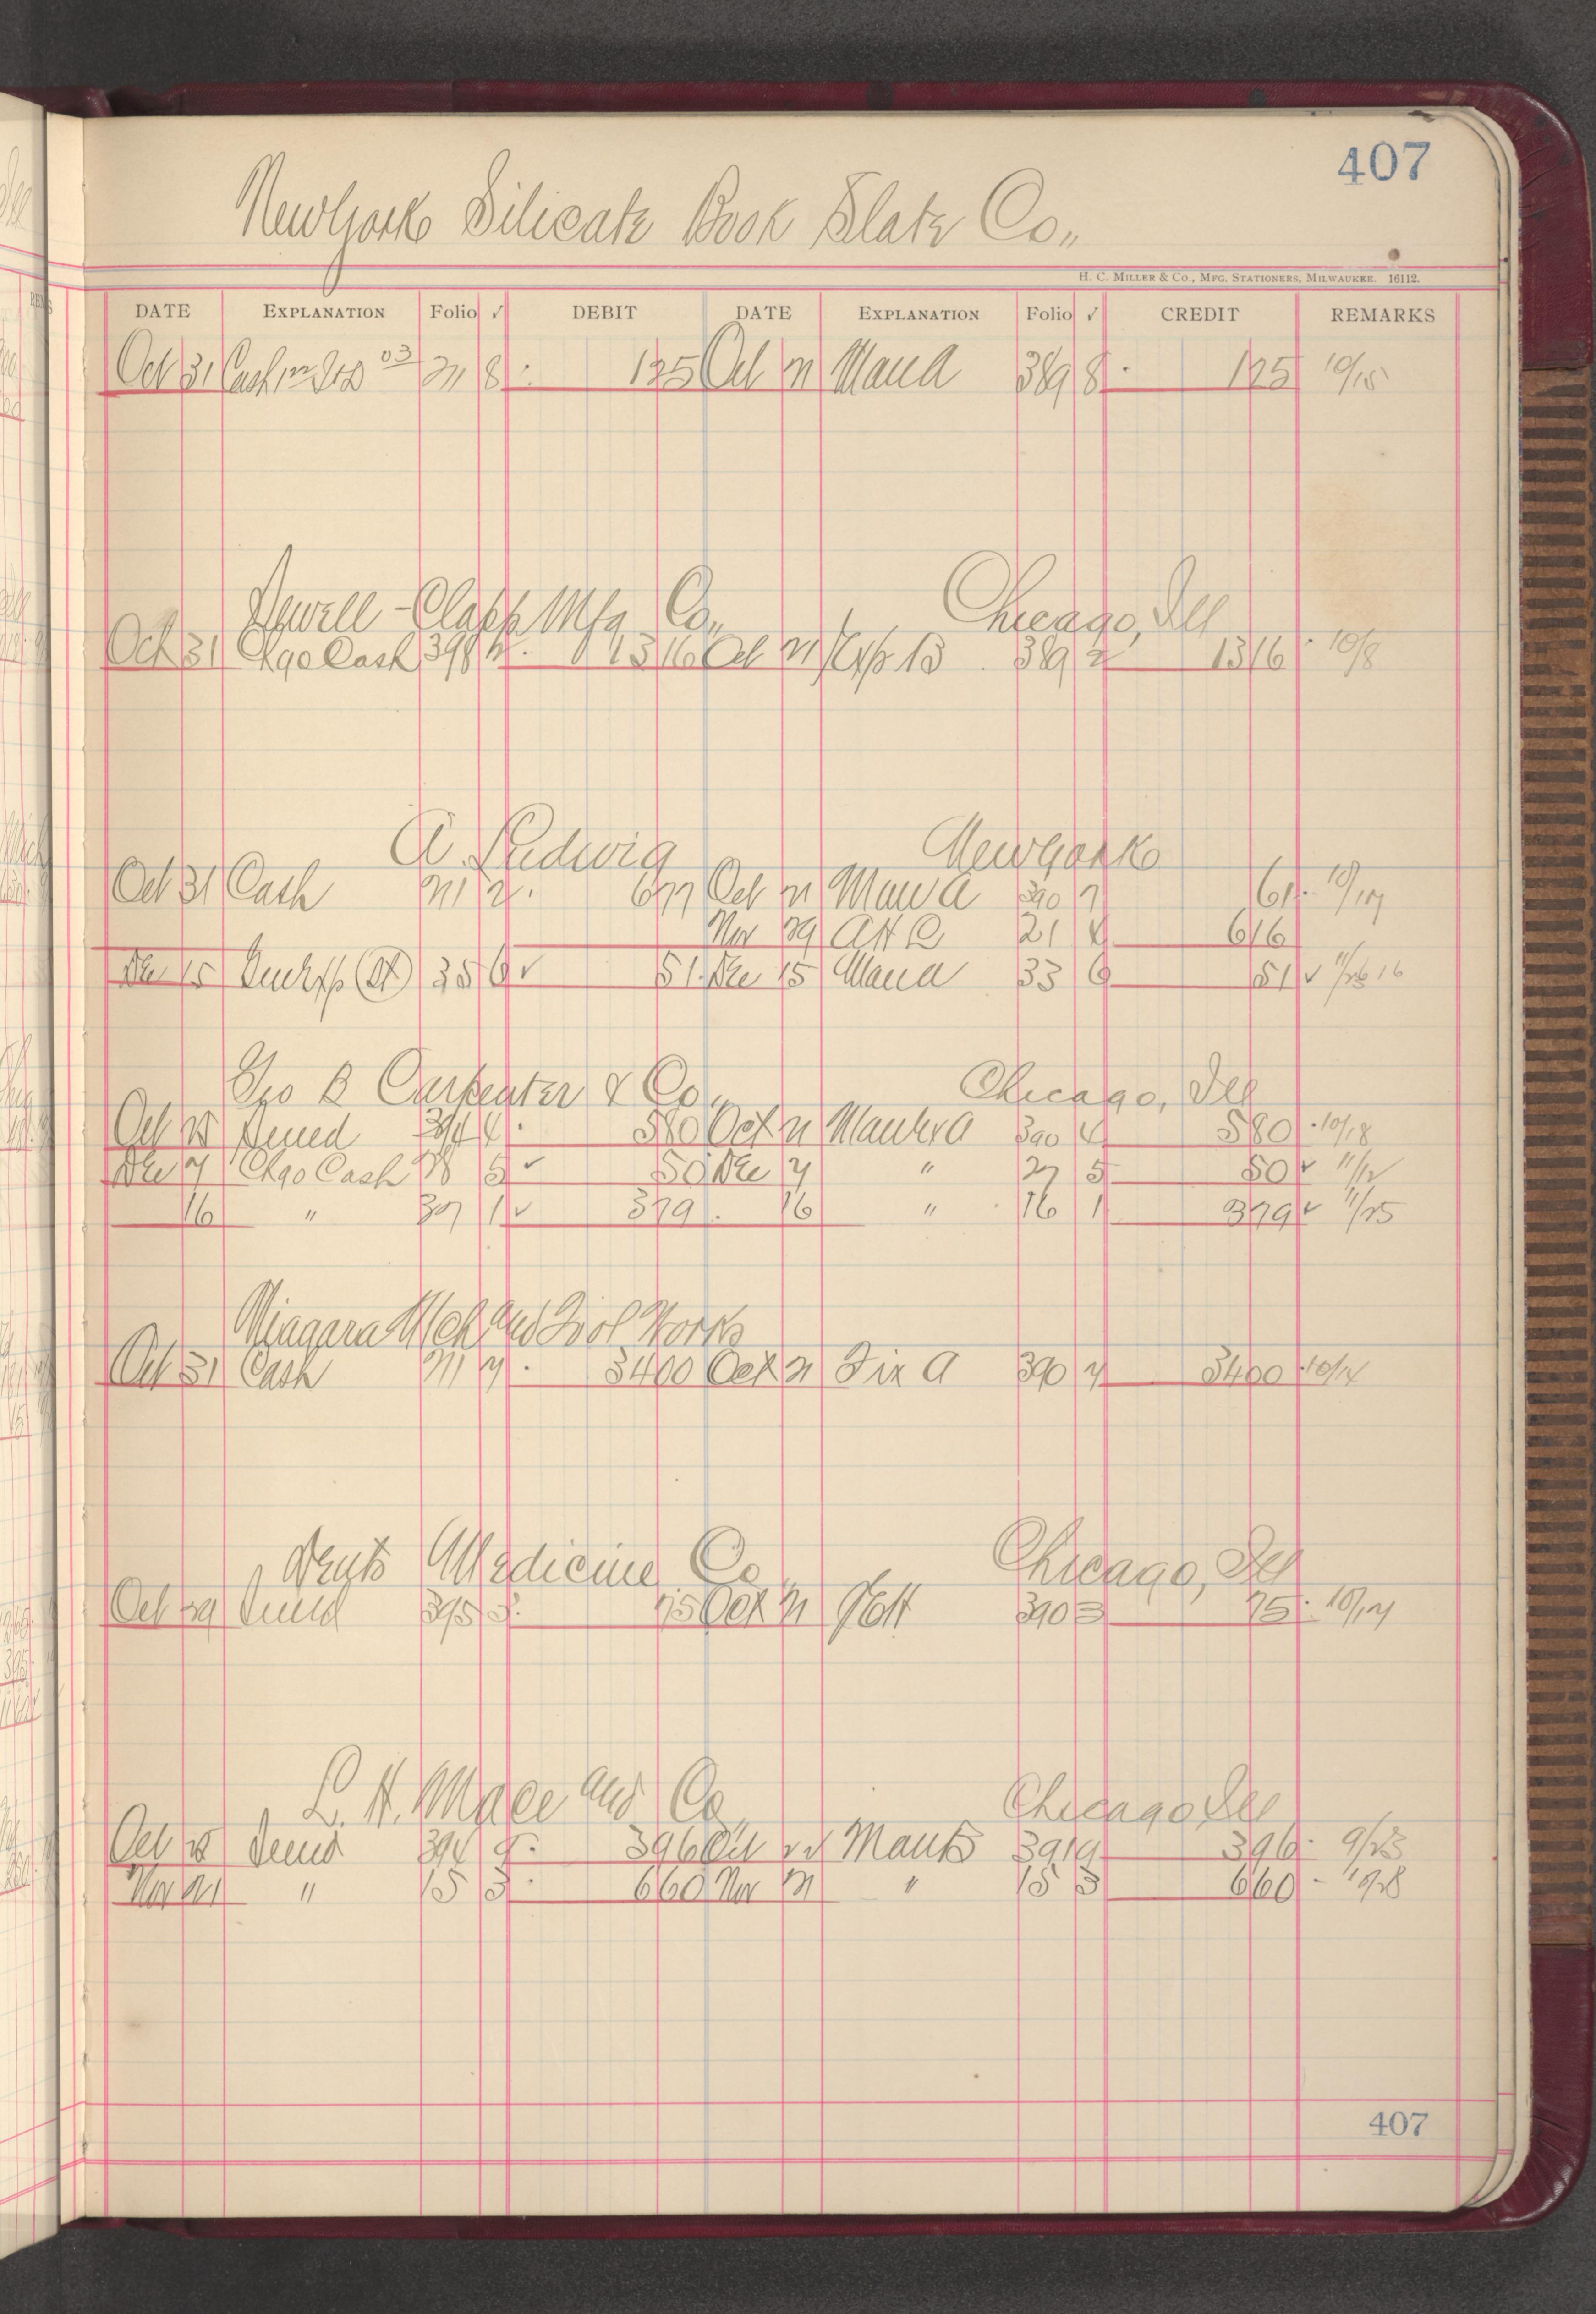 407
New York Silicate Book Slate Co.,
H. C. MILLER & CO., MFG. STATIONERS, MILWAUKEE. 16112.
DATE EXPLANATION Folio ✓ DEBIT DATE EXPLANATION Folio ✓ CREDIT REMARKS
Oct 31 Cash 03 21 8 125 Oct 21 Man A 389 8 125 10/15
Newell-Clapp Mfg Co., Chicago, Ill
Oct 31 Chgo Cash 398 2 1316 Oct 21 Exp B 389 2 1316 10/8
A. Ludwig New York
Oct 31 Cash 21 2 677 Oct 21 Man A 390 7 61 10/17
Nov 29 21 4 616
Dec 15 35 6 ✓ 51 Dec 15 Man A 33 6 51 ✓ 11/26 16
Geo B Carpenter & Co., Chicago, Ill
Oct 25 Sund 394 4 580 Oct 21 A 390 4 580 10/18
Dec 7 Chgo Cash 28 5 ✓ 50 Dec 7 " 27 5 50 ✓ 11/12
16 " 37 1 ✓ 379 16 " 16 1 379 ✓ 11/25
Niagara Mch and Tool Works
Oct 31 Cash 21 7 3400 Oct 21 Fix A 390 7 3400 10/14
Dents Medicine Co., Chicago, Ill
Oct 29 Sund 395 3 75 Oct 21 390 3 75 10/17
L. H. Mace and Co., Chicago, Ill
Oct 25 Sund 394 9 396 Oct 22 Man B 391 9 396 9/23
Nov 21 " 15 3 660 Nov 21 " 15 3 660 10/28
407